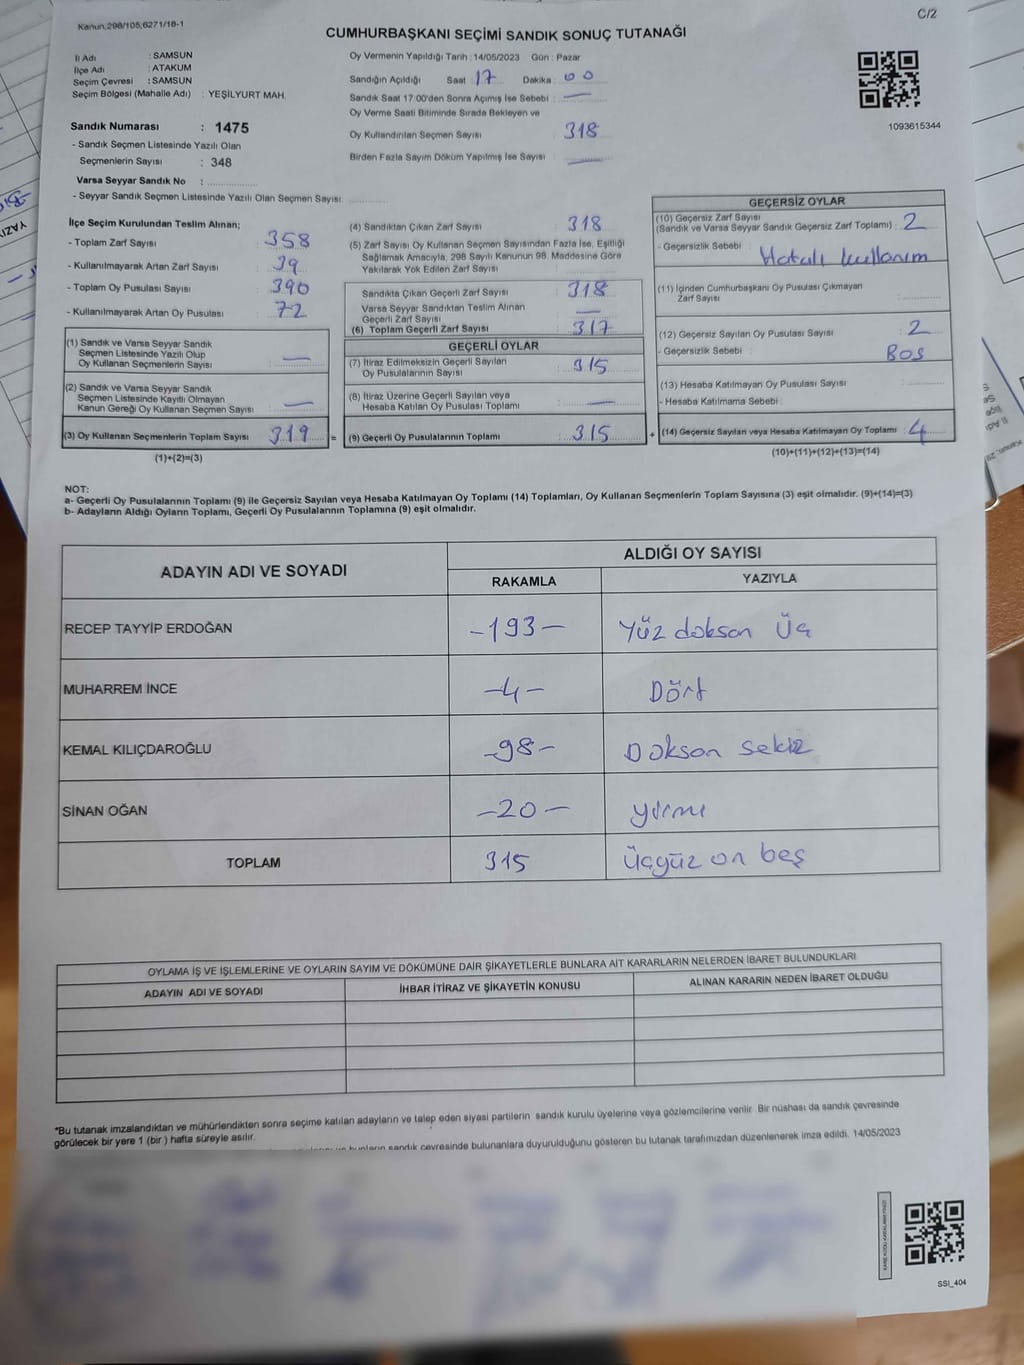 Kanun,298/105,6271/18-1
C/2
CUMHURBAŞKANI SEÇİMİ SANDIK SONUÇ TUTANAĞI
İl Adı : SAMSUN
İlçe Adı : ATAKUM
Seçim Çevresi : SAMSUN
Seçim Bölgesi (Mahalle Adı) : YEŞİLYURT MAH.
Sandık Numarası : 1475
- Sandık Seçmen Listesinde Yazılı Olan
Seçmenlerin Sayısı : 348
Varsa Seyyar Sandık No :
- Seyyar Sandık Seçmen Listesinde Yazılı Olan Seçmen Sayısı:
Oy Vermenin Yapıldığı Tarih : 14/05/2023 Gün : Pazar
Sandığın Açıldığı Saat : 17 Dakika : 00
Sandık Saat 17:00'den Sonra Açımış İse Sebebi : —
Oy Verme Saati Bitiminde Sırada Bekleyen ve
Oy Kullandırılan Seçmen Sayısı 318
Birden Fazla Sayım Döküm Yapılmış İse Sayısı : —
1093615344
İlçe Seçim Kurulundan Teslim Alınan;
- Toplam Zarf Sayısı : 358
- Kullanılmayarak Artan Zarf Sayısı : 39
- Toplam Oy Pusulası Sayısı : 390
- Kullanılmayarak Artan Oy Pusulası : 72
(1) Sandık ve Varsa Seyyar Sandık
Seçmen Listesinde Yazılı Olup
Oy Kullanan Seçmenlerin Sayısı : —
(2) Sandık ve Varsa Seyyar Sandık
Seçmen Listesinde Kayıtlı Olmayan
Kanun Gereği Oy Kullanan Seçmen Sayısı : —
(3) Oy Kullanan Seçmenlerin Toplam Sayısı : 319 =
(1)+(2)=(3)
(4) Sandıktan Çıkan Zarf Sayısı : 318
(5) Zarf Sayısı Oy Kullanan Seçmen Sayısından Fazla İse, Eşitliği
Sağlamak Amacıyla, 298 Sayılı Kanunun 98. Maddesine Göre
Yakılarak Yok Edilen Zarf Sayısı :
Sandıkta Çıkan Geçerli Zarf Sayısı : 318
Varsa Seyyar Sandıktan Teslim Alınan
Geçerli Zarf Sayısı : —
(6) Toplam Geçerli Zarf Sayısı : 317
GEÇERLİ OYLAR
(7) İtiraz Edilmeksizin Geçerli Sayılan
Oy Pusulalarının Sayısı : 315
(8) İtiraz Üzerine Geçerli Sayılan veya
Hesaba Katılan Oy Pusulası Toplamı : —
(9) Geçerli Oy Pusulalarının Toplamı : 315 +
GEÇERSİZ OYLAR
(10) Geçersiz Zarf Sayısı
(Sandık ve Varsa Seyyar Sandık Geçersiz Zarf Toplamı) : 2
- Geçersizlik Sebebi : Hatalı kullanım
(11) İçinden Cumhurbaşkanı Oy Pusulası Çıkmayan
Zarf Sayısı :
(12) Geçersiz Sayılan Oy Pusulası Sayısı : 2
- Geçersizlik Sebebi : Boş
(13) Hesaba Katılmayan Oy Pusulası Sayısı :
- Hesaba Katılmama Sebebi :
(14) Geçersiz Sayılan veya Hesaba Katılmayan Oy Toplamı : 4
(10)+(11)+(12)+(13)=(14)
NOT:
a- Geçerli Oy Pusulalarının Toplamı (9) ile Geçersiz Sayılan veya Hesaba Katılmayan Oy Toplamı (14) Toplamları, Oy Kullanan Seçmenlerin Toplam Sayısına (3) eşit olmalıdır. (9)+(14)=(3)
b- Adayların Aldığı Oyların Toplamı, Geçerli Oy Pusulalarının Toplamına (9) eşit olmalıdır.
ADAYIN ADI VE SOYADI ALDIĞI OY SAYISI
RAKAMLA YAZIYLA
RECEP TAYYİP ERDOĞAN -193- Yüz doksan Üç
MUHARREM İNCE -4- Dört
KEMAL KILIÇDAROĞLU -98- Doksan sekiz
SİNAN OĞAN -20- yirmi
TOPLAM 315 üçyüz on beş
OYLAMA İŞ VE İŞLEMLERİNE VE OYLARIN SAYIM VE DÖKÜMÜNE DAİR ŞİKAYETLERLE BUNLARA AİT KARARLARIN NELERDEN İBARET BULUNDUKLARI
ADAYIN ADI VE SOYADI İHBAR İTİRAZ VE ŞİKAYETİN KONUSU ALINAN KARARIN NEDEN İBARET OLDUĞU
*Bu tutanak imzalandıktan ve mühürlendikten sonra seçime katılan adayların ve talep eden siyasi partilerin sandık kurulu üyelerine veya gözlemcilerine verilir. Bir nüshası da sandık çevresinde
görülecek bir yere 1 (bir ) hafta süreyle asılır.
bunların sandık çevresinde bulunanlara duyurulduğunu gösteren bu tutanak tarafımızdan düzenlenerek imza edildi. 14/05/2023
SSI_404